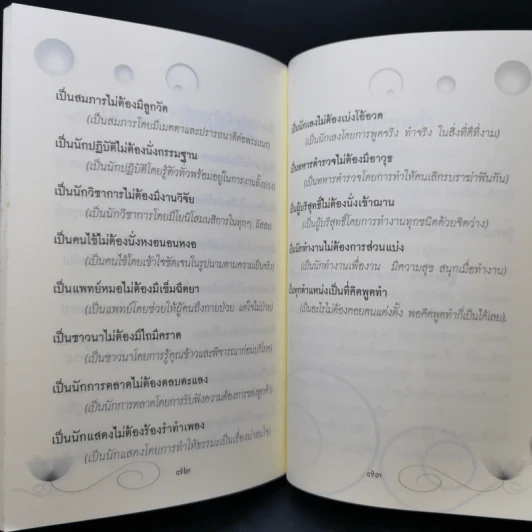 เป็นสมภารไม่ต้องมีลูกวัด
(เป็นสมภารโดยมีเมตตาและปรารถนาดีต่อพระเณร)
เป็นนักปฏิบัติไม่ต้องนั่งกรรมฐาน
(เป็นนักปฏิบัติโดยรู้ตัวทั่วพร้อมอยู่ในการงานทั้งปวง)
เป็นนักวิชาการไม่ต้องมีงานวิจัย
(เป็นนักวิชาการโดยมีโยนิโสมนสิการในทุกๆ
เป็นคนไข้ไม่ต้องนั่งหงอนอนหงอ
(เป็นคนไข้โดยเข้าใจชัดเจนในรูปนามตามความเป็นจริง)
เป็นแพทย์หมอไม่ต้องมีเข็มฉีดยา
(เป็นแพทย์โดยช่วยให้ผู้คนถึงกายป่วย แต่ใจไม่ป่วย)
เป็นชาวนาไม่ต้องมีไถมีคราด
(เป็นชาวนาโดยการรู้คุณข้าวและพิจารณาก่อนบริโภค)
เป็นนักการตลาดไม่ต้องตลบตะแลง
(เป็นนักการตลาดโดยการรับฟังความต้องการของลูกค้า)
เป็นนักแสดงไม่ต้องร้องรำทำเพลง
(เป็นนักแสดงโดยการทำให้ธรรมะเป็นเรื่องน่าสนใจ)
๗๒
เป็นนักเลงไม่ต้องเบ่งโอ้อวด
(เป็นนักเลงโดยการพูดจริง ทำจริง ในสิ่งที่ดีที่งาม)
เป็นทหารตำรวจไม่ต้องมีอาวุธ
(เป็นทหารตำรวจโดยการทำให้คนเลิกรบราฆ่าฟันกัน)
เป็นผู้บริสุทธิ์ไม่ต้องนั่งเข้าฌาน
(เป็นผู้บริสุทธิ์โดยการทำงานทุกชนิดด้วยจิตว่าง)
เป็นนักทำงานไม่ต้องการส่วนแบ่ง
(เป็นนักทำงานเพื่องาน มีความสุข สนุกเมื่อทำงาน)
เป็นทุกตำแหน่งเป็นที่คิดพูดทำ
(เป็นอะไรไม่ต้องคอยคนแต่งตั้ง พอคิดพูดทำก็เป็นได้เลย)
๗๓